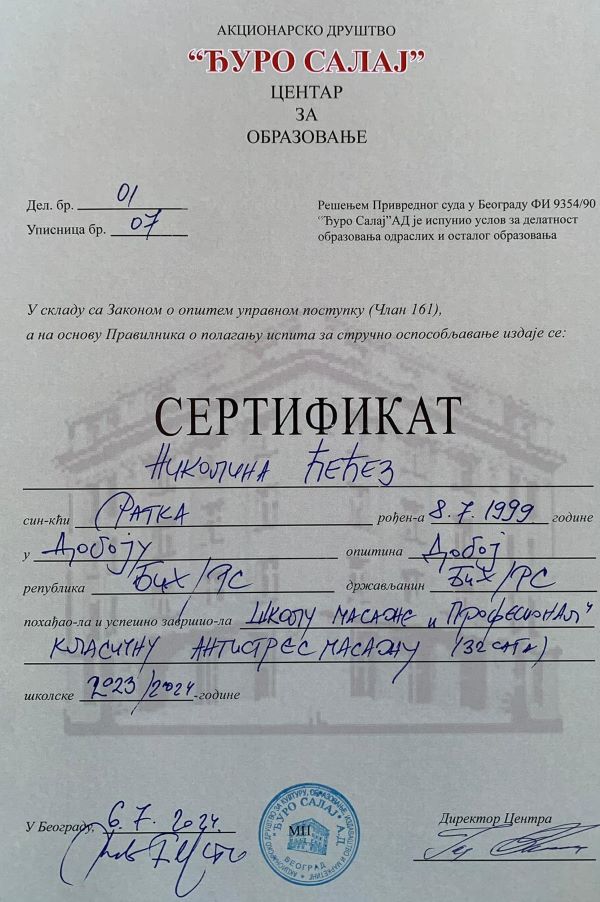 АКЦИОНАРСКО ДРУШТВО
“ЂУРО САЛАЈ”
ЦЕНТАР
ЗА
ОБРАЗОВАЊЕ
Дел. бр. 01
Уписница бр. 07
Решењем Привредног суда у Београду ФИ 9354/90
“Ђуро Салај”АД је испунио услов за делатност
образовања одраслих и осталог образовања
У складу са Законом о општем управном поступку (Члан 161),
а на основу Правилника о полагању испита за стручно оспособљавање издаје се:
СЕРТИФИКАТ
Николина Ђећез
син-кћи Ратка рођен-а 8.7.1999 године
у Добоју општина Добој
република БиХ/РС држављанин БиХ/РС
похађао-ла и успешно завршио-ла Школу масаже и „Професионал“
класичну антистрес масажу (32 сата)
школске 2023/2024-године
У Београду, 6.7.2024.
МП
Директор Центра
АКЦИОНАРСКО ДРУШТВО ЗА КУЛТУРУ, ОБРАЗОВАЊЕ, ИЗДАВАШТВО И МАРКЕТИНГ
“ЂУРО САЛАЈ” А.Д.
БЕОГРАД